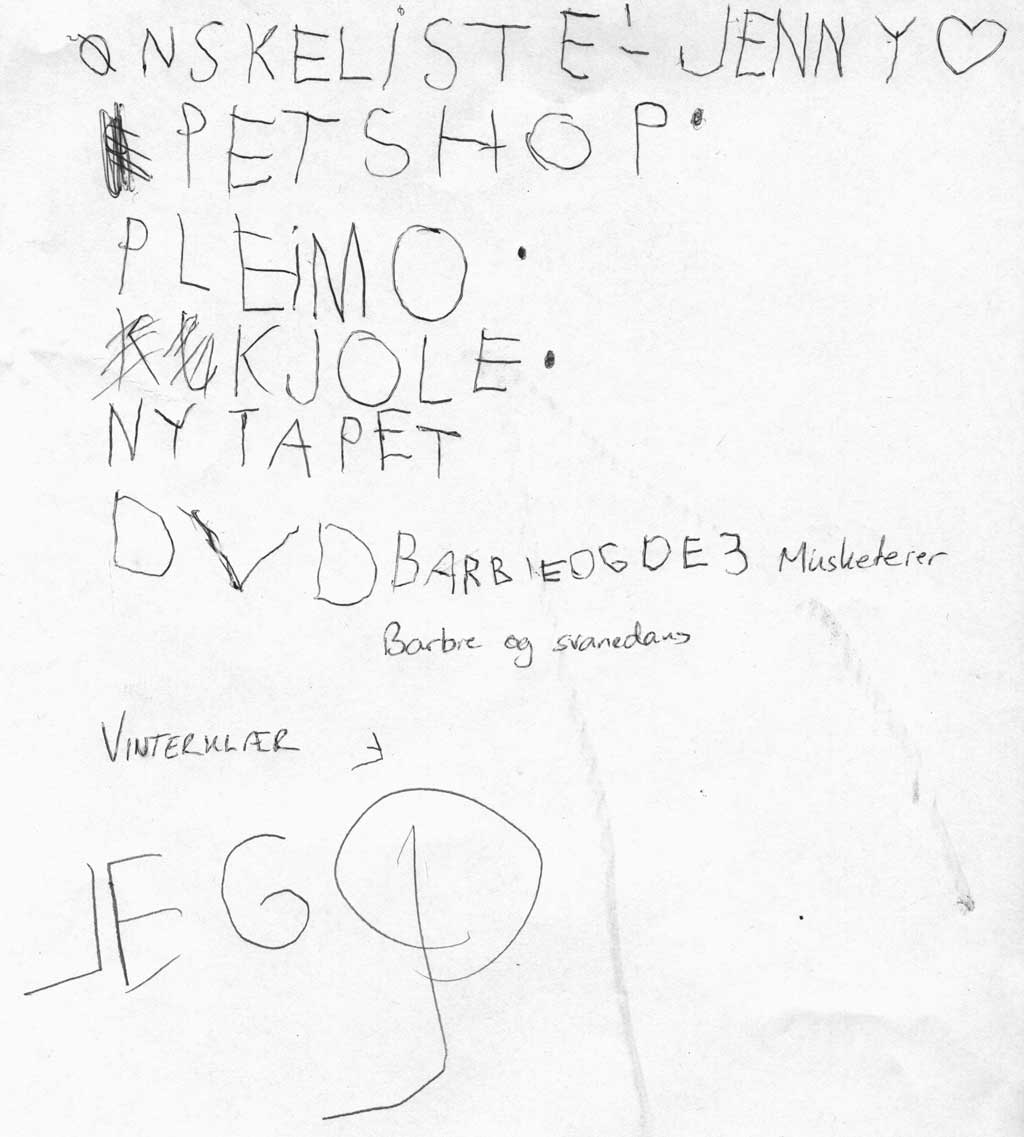 ØNSKELISTE - JENNY ♡
PETSHOP.
PLEiMO .
KJOLE.
NY TAPET
DVD BARBIE OG DE 3 Musketerer
Barbie og svanedans
VINTERKLÆR
JEG